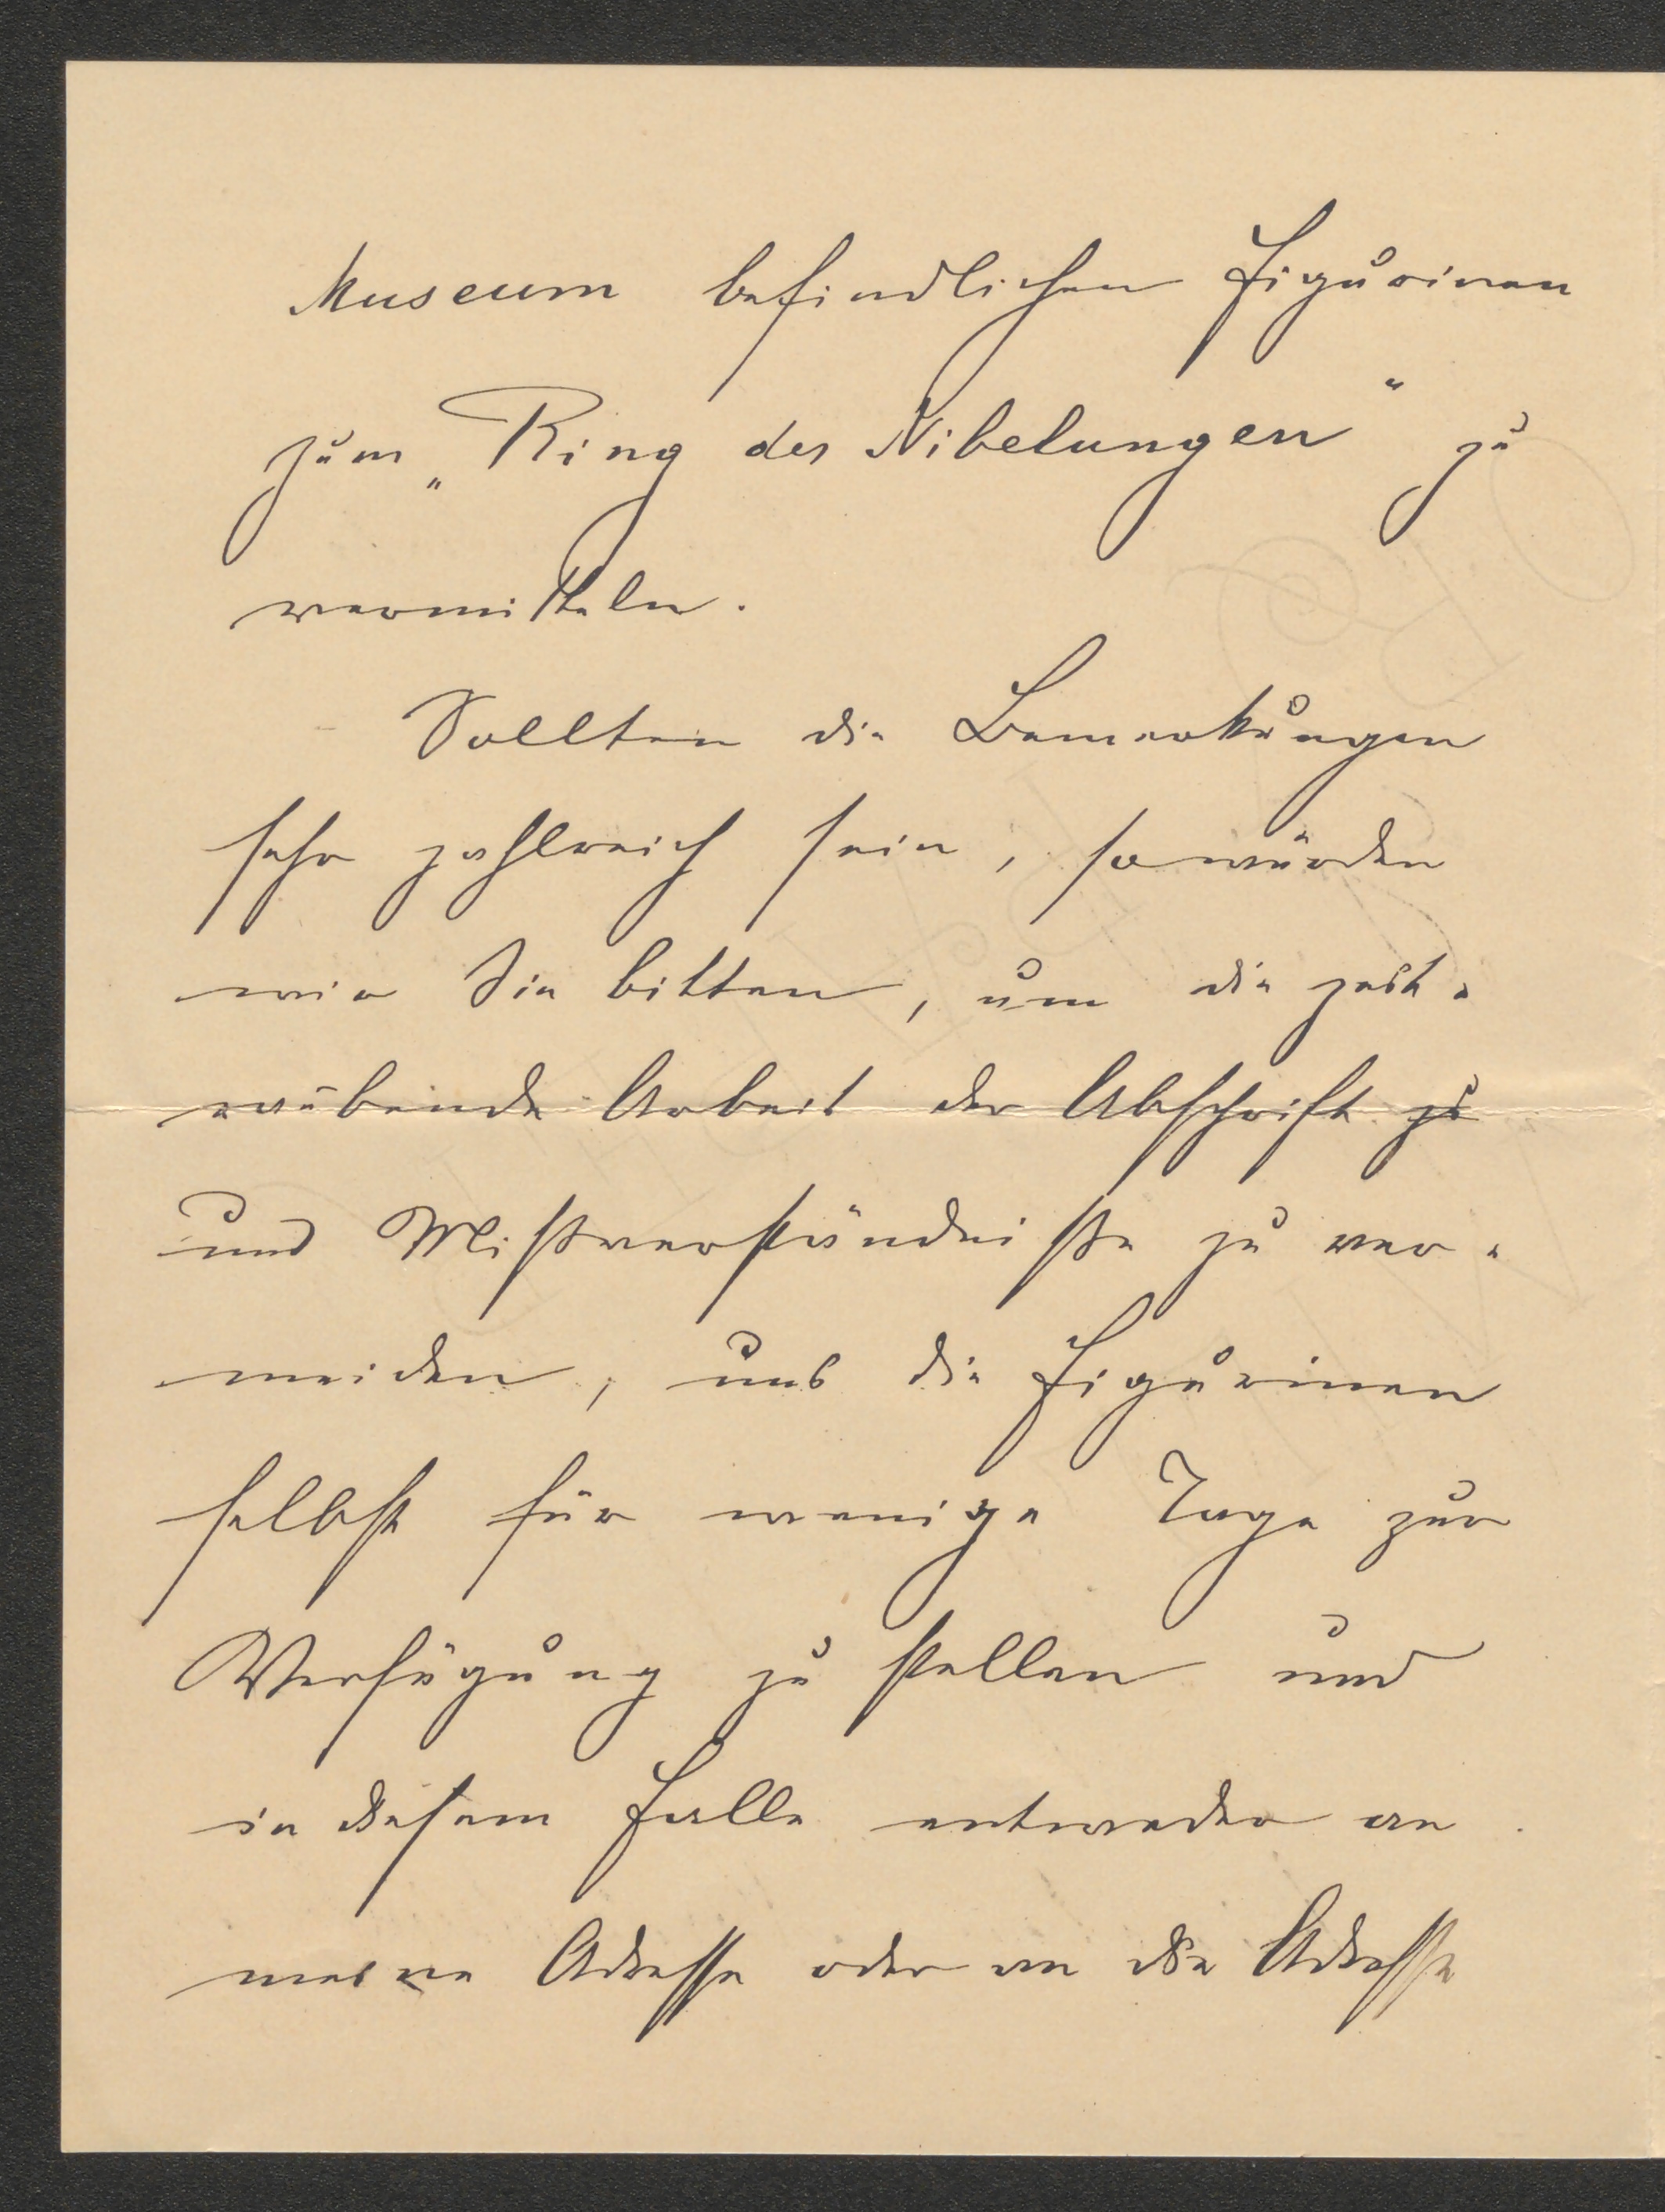 Museum befindlichen Figurinen
zum „Ring des Nibelungen“ zu
vermitteln.
Sollten die Bemerkungen
sehr zahlreich sein, so würden
wir Sie bitten, um die zeit-
raubende Arbeit der Abschrift zu
und Mißverständniße zu ver-
meiden, uns die Figurinen
selbst für wenige Tage zur
Verfügung zu stellen und
in diesem Falle entweder an
meine Adresse oder an die Adresse